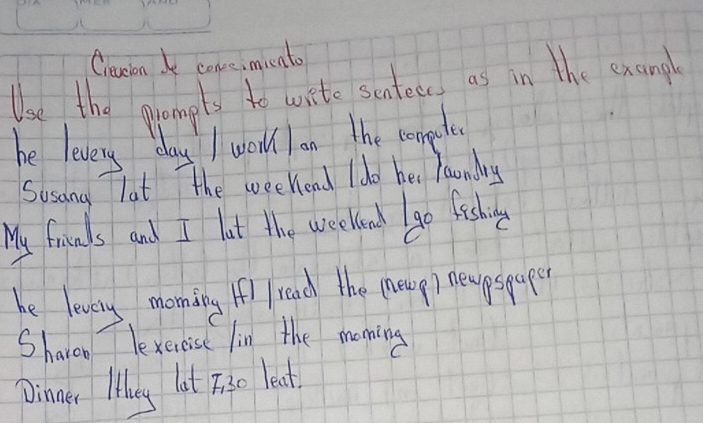 Creacion de conocimiento
Use the prompts to write senteces as in the example
he /every day / work / on the computer
Susana /at the weekend /do her laundry
My friends and I /at the weekend /go fishing
he /every morning /read the newspspaper
Sharon /exercise /in the morning
Dinner /they /at 7,30 /eat.